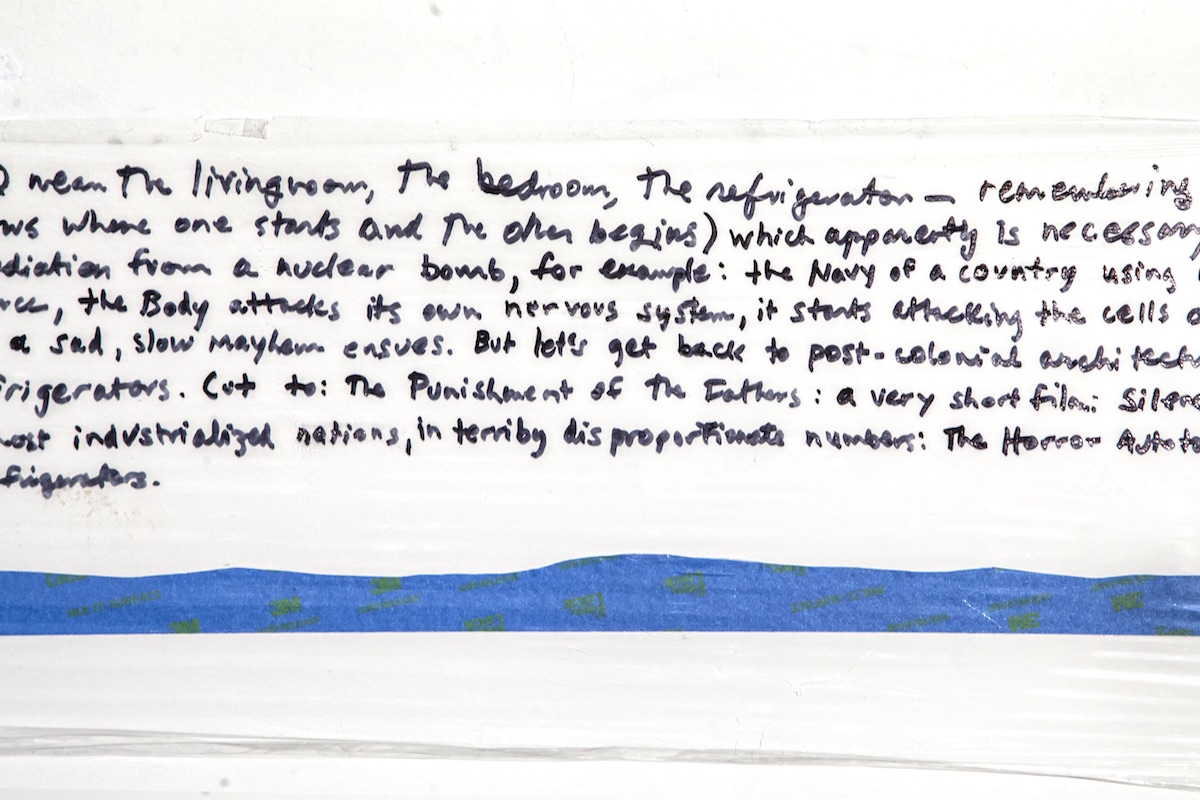 mean The livingroom, The bedroom, The refrigerator — remembering
ws where one starts and The other begins) which apparently is necessary
diation from a nuclear bomb, for example: the Navy of a country using
rce, the Body attacks its own nervous system, it starts attacking the cells
a sad, slow mayhem ensues. But let's get back to post-colonial architectu
rigerators. Cut to: The Punishment of The Fathers: a very short film: Silen
most industrialized nations, in terriby disproportionate numbers: The Horror Autoto
frigerators.